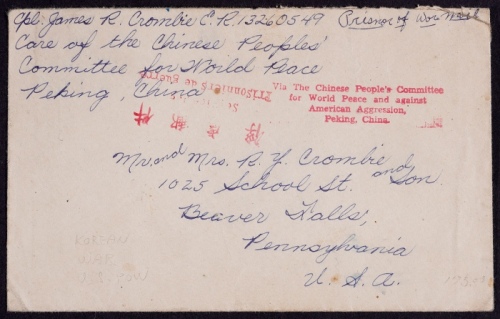 Cpl. James R. Crombie E.R. 13260549
Prisner of War Mail
Care of the Chinese Peoples'
Committee for World Peace
Peking, China
Prisonniers de Guerre
Via The Chinese People's Committee
for World Peace and against
American Aggression,
Peking, China.
Mr. and Mrs. R. Y. Crombie
and Son
1025 School St.
Beaver Falls,
Pennsylvania
U. S. A.
KOREAN
WAR